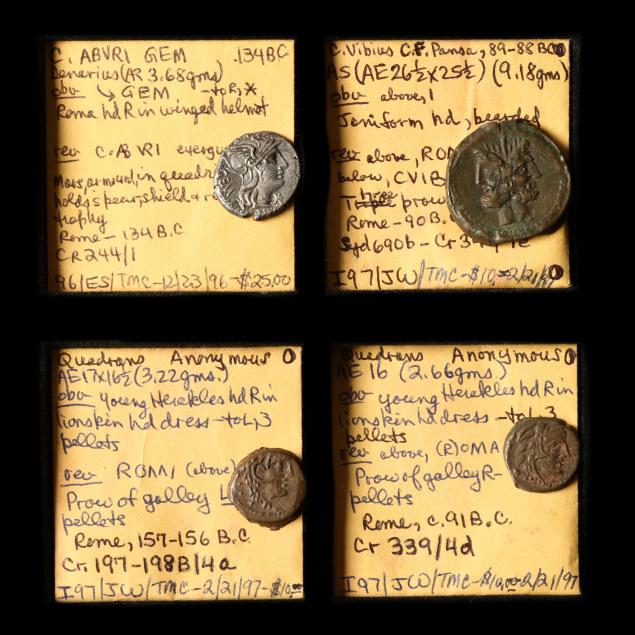 C. ABVRI GEM .134BC
Denarius (AR 3.68gms)
obv ↳ GEM - to R, *
Roma hd R in winged helmet
rev C. ABVRI exergu
Mars, armoured, in quadr
holds spear, shield + r
trophy
Rome - 134 B.C.
CR 244/1
96/ES/TMC-12/23/96-$25.00
C. Vibius C.F. Pansa, 89-88 BC
AS (AE 26½ X 25½) (9.18gms)
obv above, I
Janiform hd, bearded
rev above, ROM
below, CVIB
Three prow
Rome - 90 B.
Syd 690b - Cr 34
I97/JW/TMC-$10.-2/21/97
Quadrans Anonymous
AE 17X16½ (3.22gms.)
obv young Herakles hd R in
lionskin hd dress - to L, 3
pellets
rev ROMA (above)
Prow of galley
pellets
Rome, 157-156 B.C.
Cr. 197-198B/4a
I97/JW/TMC-2/21/97-$10.00
Quadrans Anonymous
AE 16 (2.66gms)
obv young Herakles hd R in
lionskin hd dress - to L, 3
pellets
rev above, (R)OMA
Prow of galley R-
pellets
Rome, c. 91 B.C.
Cr 339/4d
I97/JW/TMC-$10.00-2/21/97